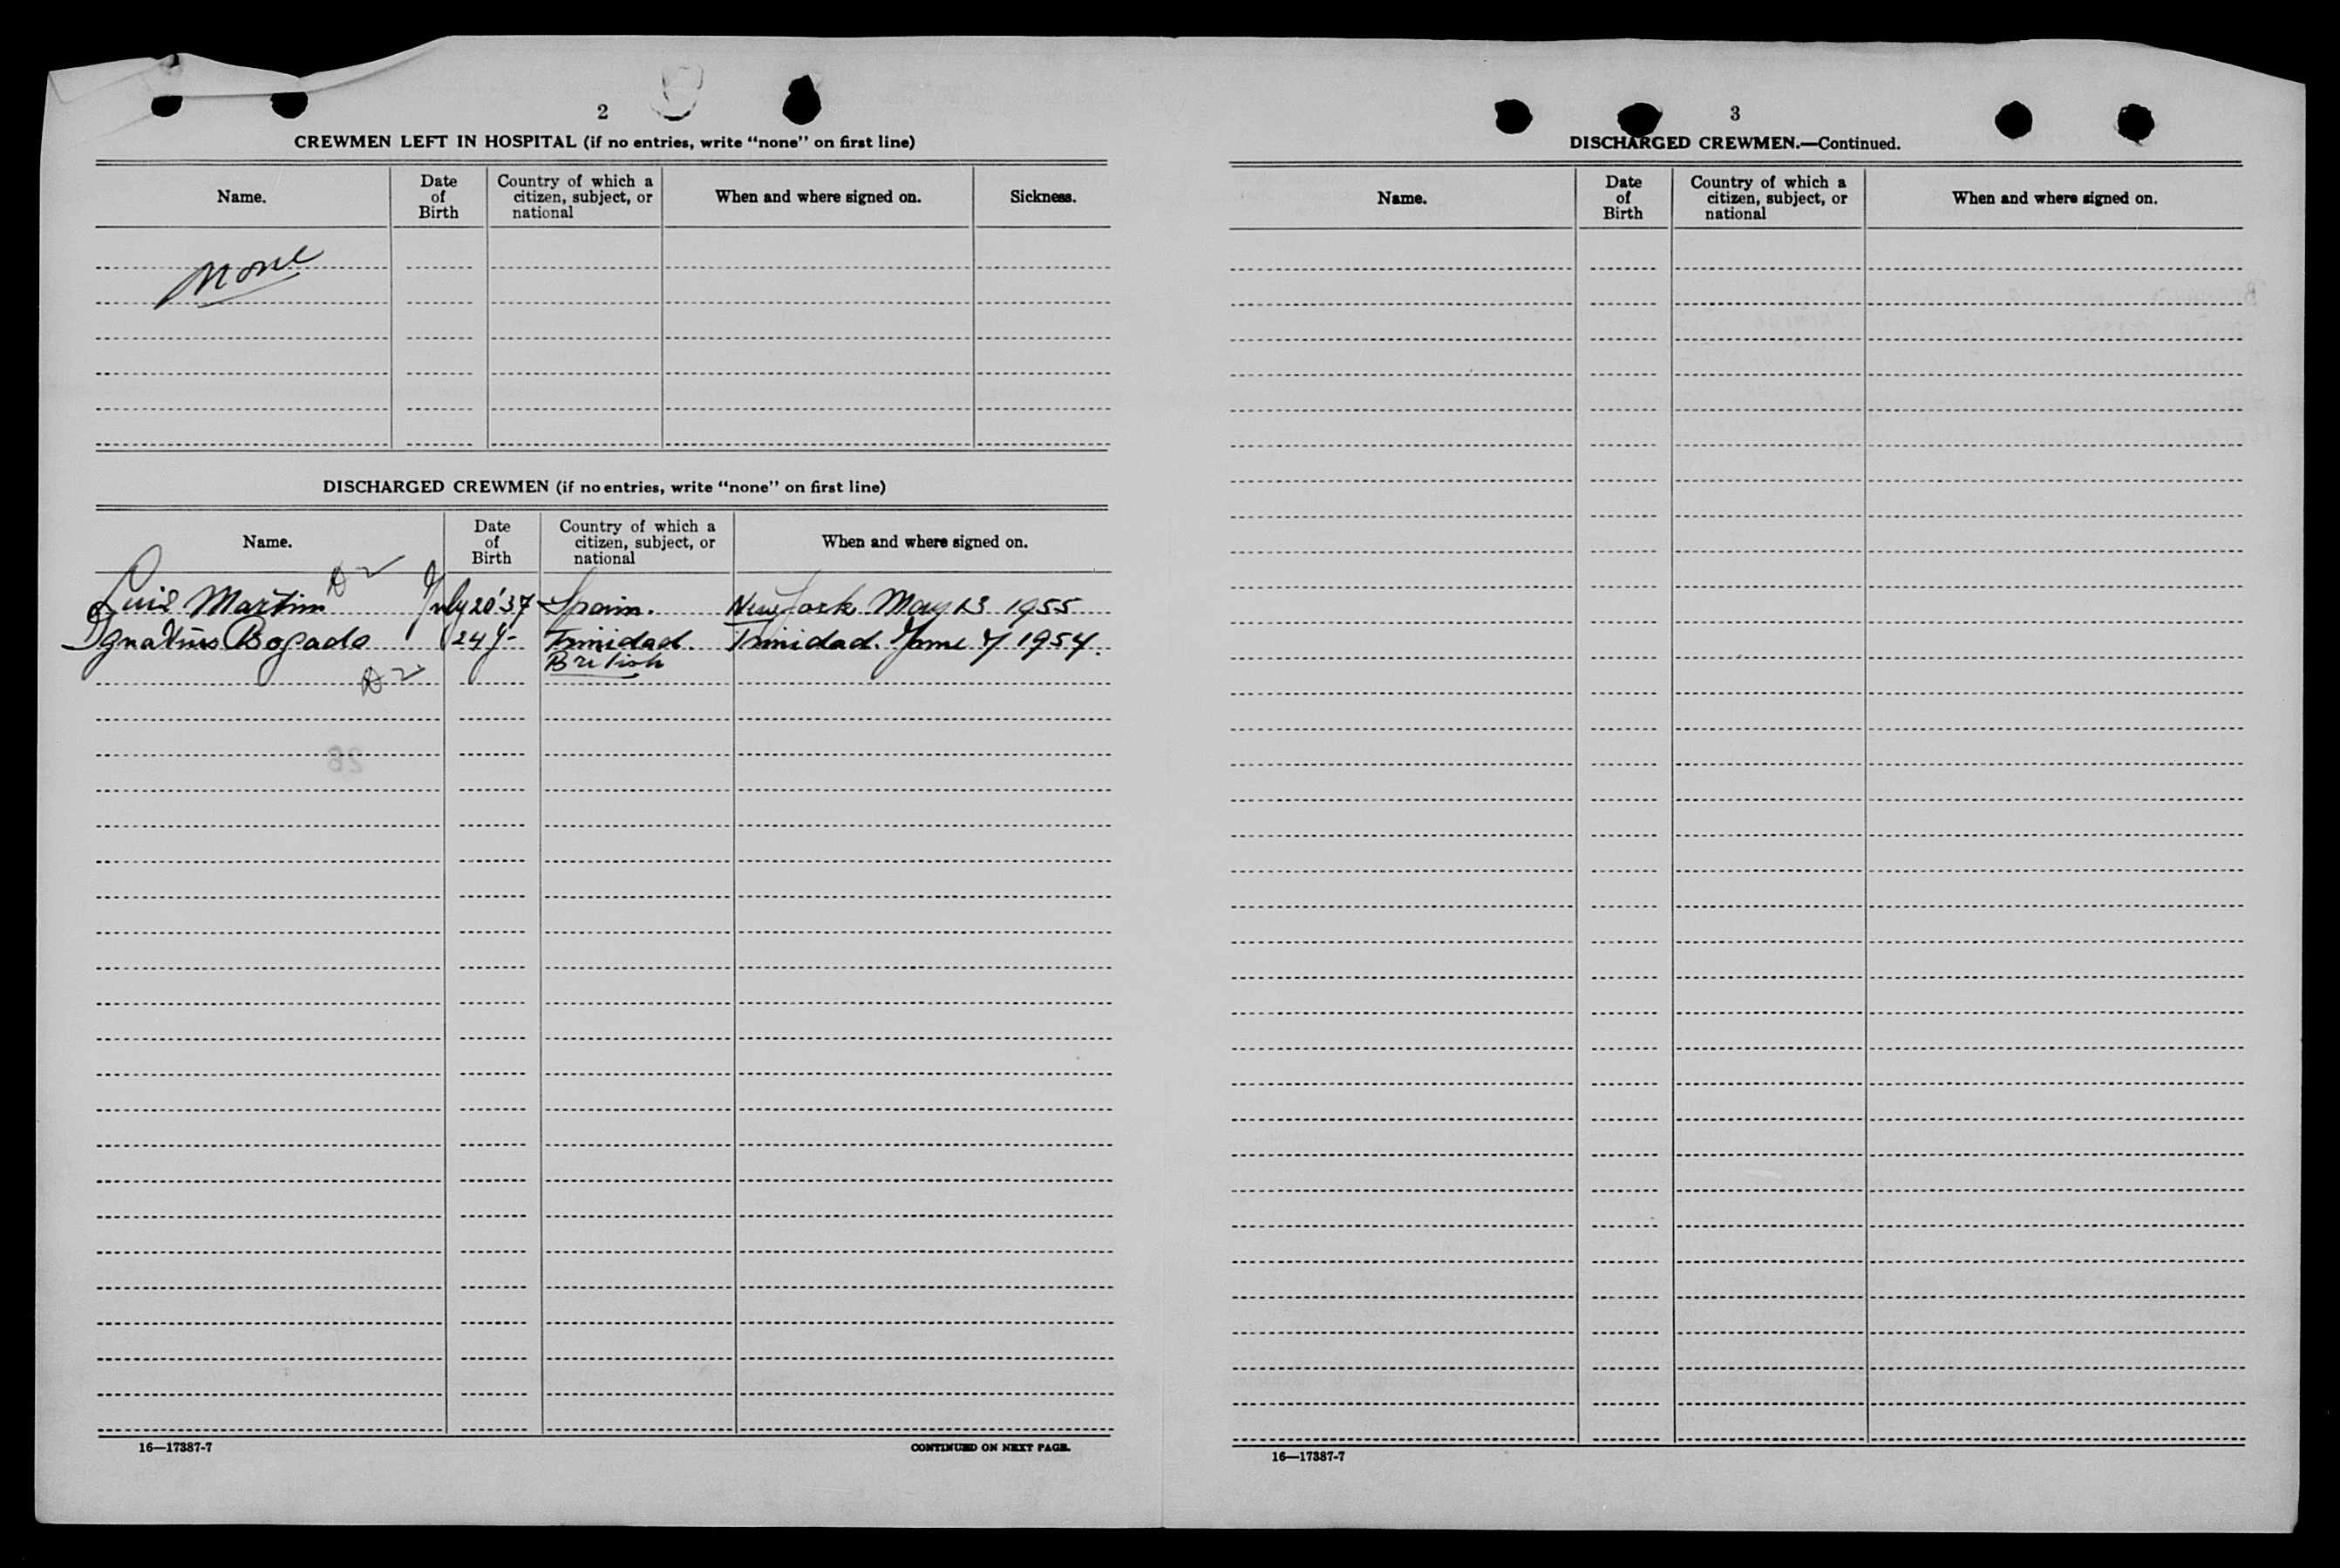 2
CREWMEN LEFT IN HOSPITAL (if no entries, write “none” on first line)
Name. Date of Birth Country of which a citizen, subject, or national When and where signed on. Sickness.
None
DISCHARGED CREWMEN (if no entries, write “none” on first line)
Name. Date of Birth Country of which a citizen, subject, or national When and where signed on.
Luis Martin July 20'37 Spain. New York May 13 1955
Ignatius Bogado 24 y- Trinidad. Trinidad. June 1954.
British
16—17387-7 CONTINUED ON NEXT PAGE.
3
DISCHARGED CREWMEN.—Continued.
Name. Date of Birth Country of which a citizen, subject, or national When and where signed on.
16—17387-7